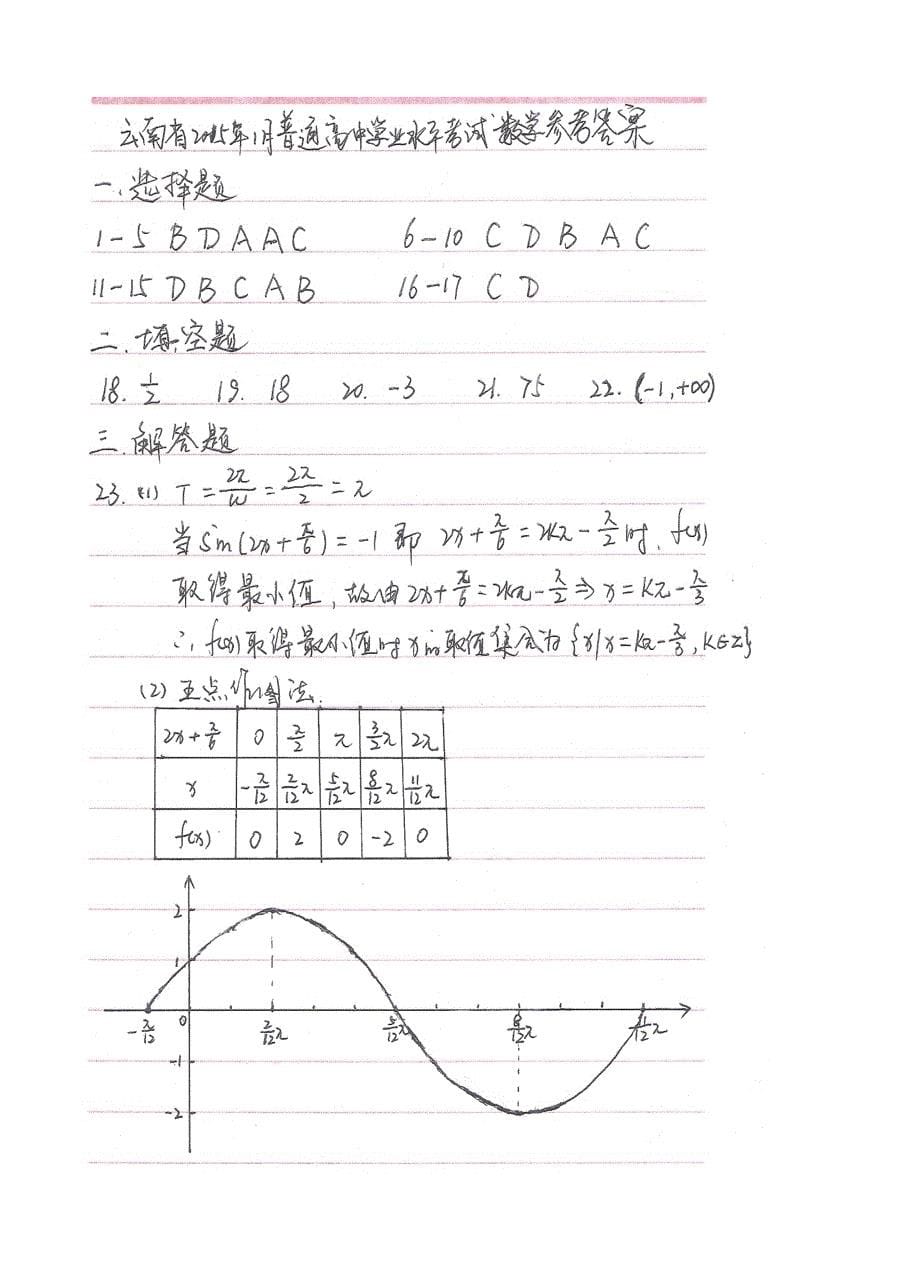 云南省2015年1月普通高中学业水平考试数学参考答案
一、选择题
1-5 B D A A C 6-10 C D B A C
11-15 D B C A B 16-17 C D
二、填空题
18. 1/2 19. 18 20. -3 21. 75 22. (-1,+∞)
三、解答题
23. (1) T = 2π/w = 2π/2 = π
当 Sin(2x+π/6) = -1 即 2x+π/6 = 2kπ-π/2 时, f(x)
取得最小值, 故由 2x+π/6 = 2kπ-π/2 ⇒ x = kπ-π/3
∴ f(x)取得最小值时x的取值集合为 {x|x=kπ-π/3, k∈Z}
(2) 五点作图法.
2x+π/6 0 π/2 π 3/2π 2π
x -π/12 2/12π 5/12π 8/12π 11/12π
f(x) 0 2 0 -2 0
2
1
-π/12 0 2/12π 5/12π 8/12π 11/12π
-1
-2